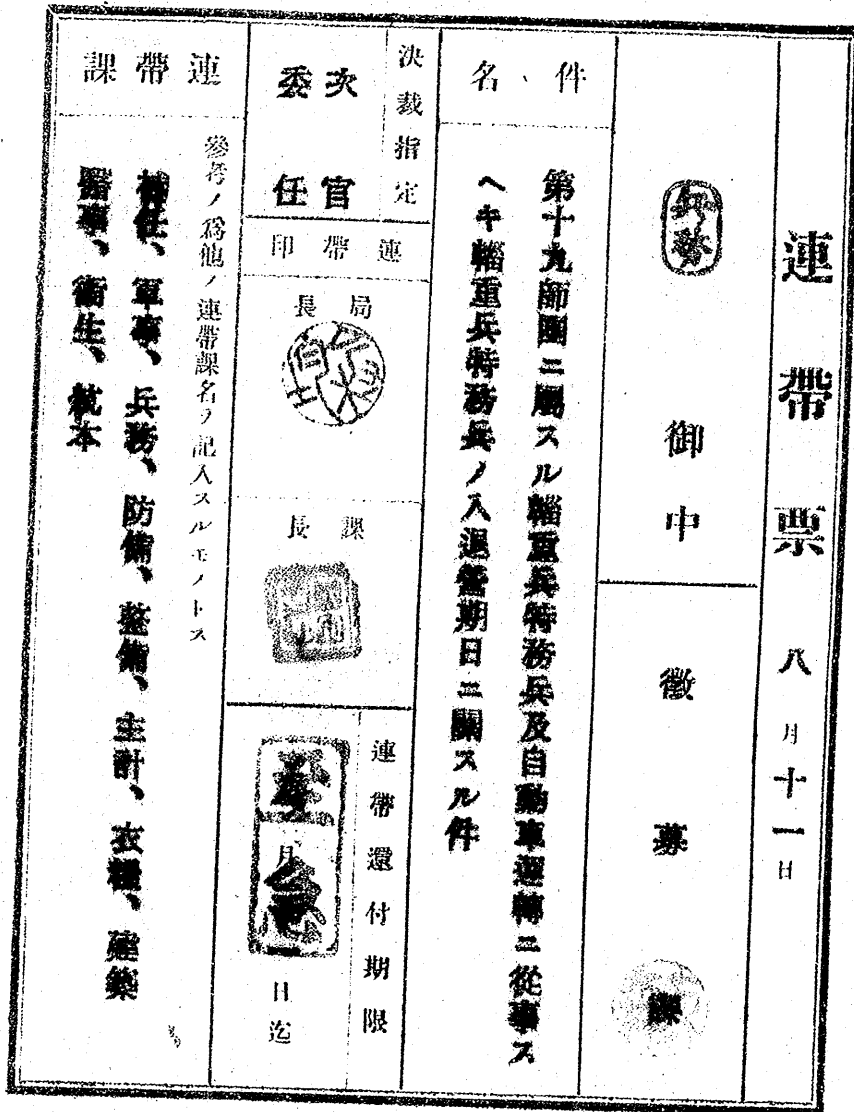 連帶票 八月十一日
兵務 御中
徵募課
件名
第十九師團ニ屬スル輜重兵特務兵及自動車運轉ニ從事ス
ヘキ輜重兵特務兵ノ入退營期日ニ關スル件
決裁指定
次官
委任
連帶印
局長
課長
連帶還付期限
至急
月
日迄
連帶課
參考ノ爲他ノ連帶課名ヲ記入スルモノトス
補任、軍事、兵務、防備、整備、主計、衣糧、建築
醫事、衞生、